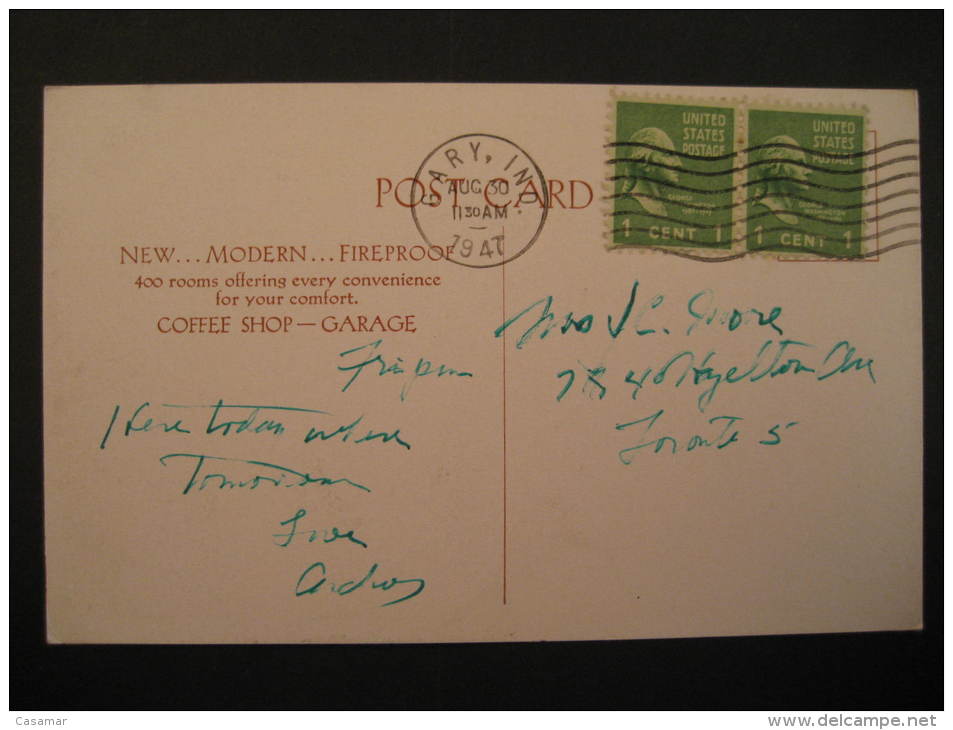 UNITED
STATES
POSTAGE
1 CENT 1
UNITED
STATES
POSTAGE
GEORGE
WASHINGTON
1 CENT 1
GARY, IND.
AUG 30
11 30 AM
1947
POST CARD
NEW... MODERN... FIREPROOF
400 rooms offering every convenience
for your comfort.
COFFEE SHOP — GARAGE
Fri pm
Here today where
Tomorrow
Love
Mrs J C. Moore
Hazelton Ave
Toronto 5
Casamar
www.delcampe.net